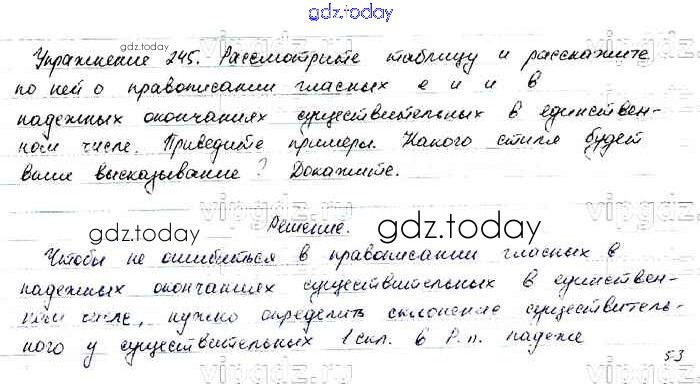 gdz.today
Упражнение 245. Рассмотрите таблицу и расскажите
gdz.today
по ней о правописании гласных е и и в
падежных окончаниях существительных в единствен-
ном числе. Приведите примеры. Какого стиля будет
ваше высказывание? Докажите.
vipgdz.ru
Решение.
gdz.today
gdz.today
Чтобы не ошибиться в правописании гласных в
падежных окончаниях существительных в единствен-
ном числе, нужно определить склонение существитель-
ного у существительных 1 скл. в Р.п. падеже
53